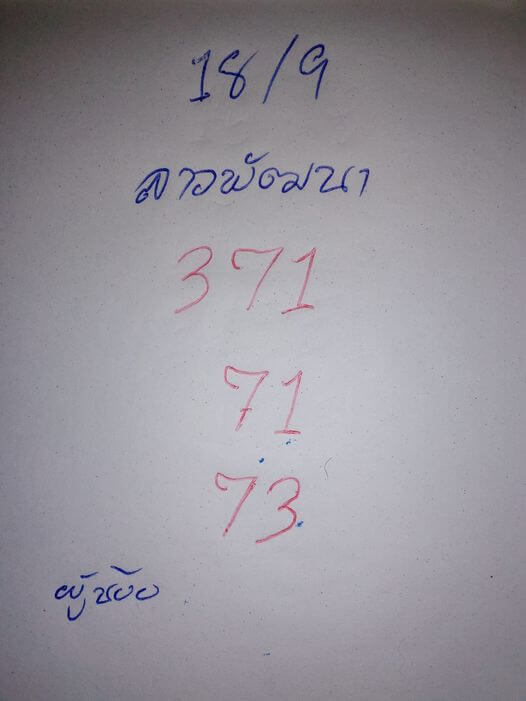 18/9
ลาวพัฒนา
371
71
73